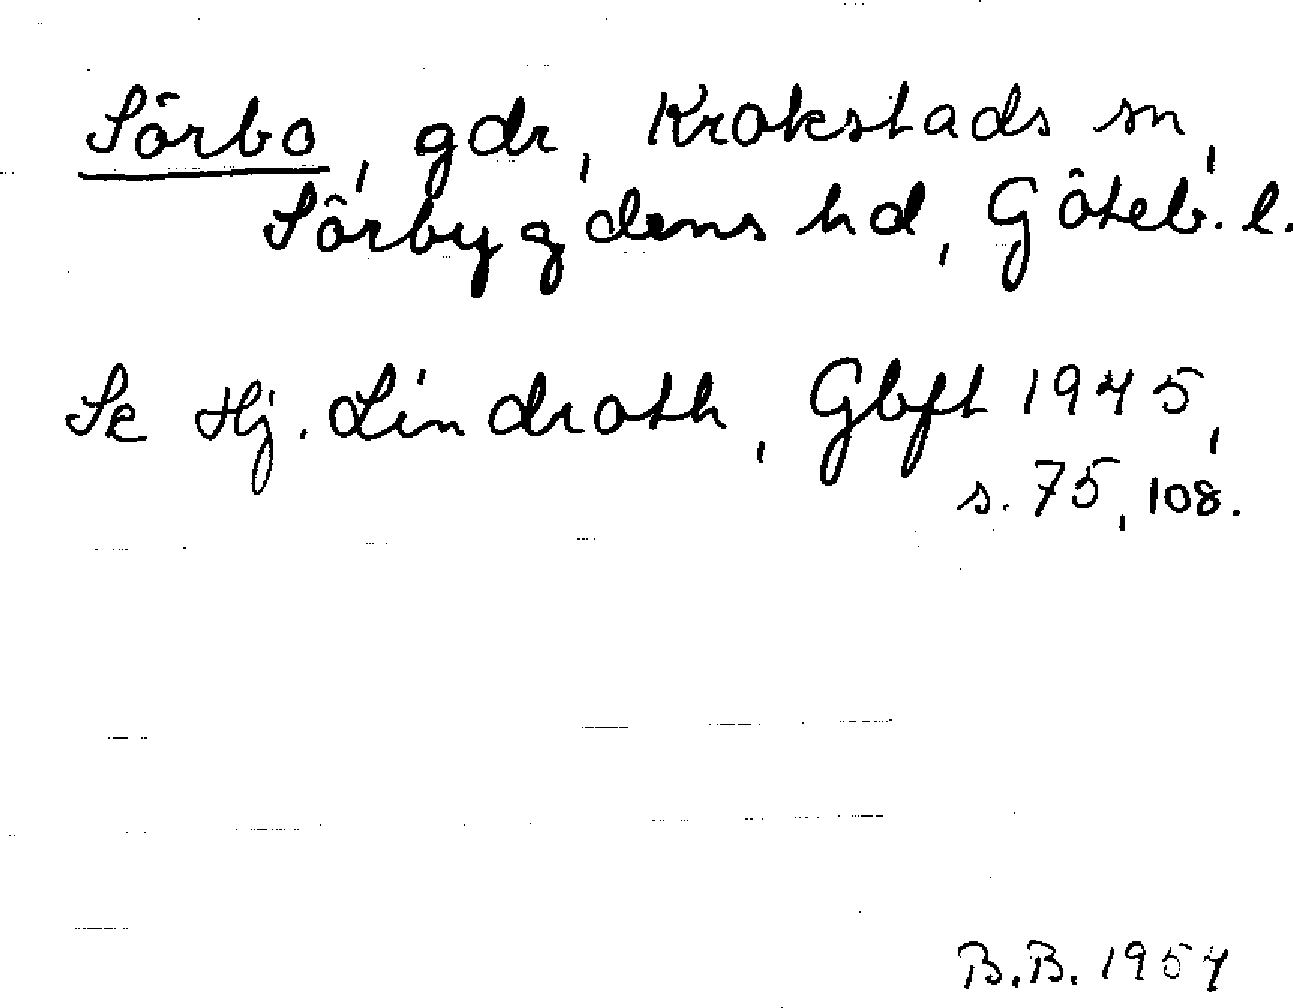 Sörbo, gdr, Krokstads sn,
Sörbygdens hd, Göteb. l.
Se Hj. Lindroth, Gbft 1945,
s. 75, 108.
B.B. 1957